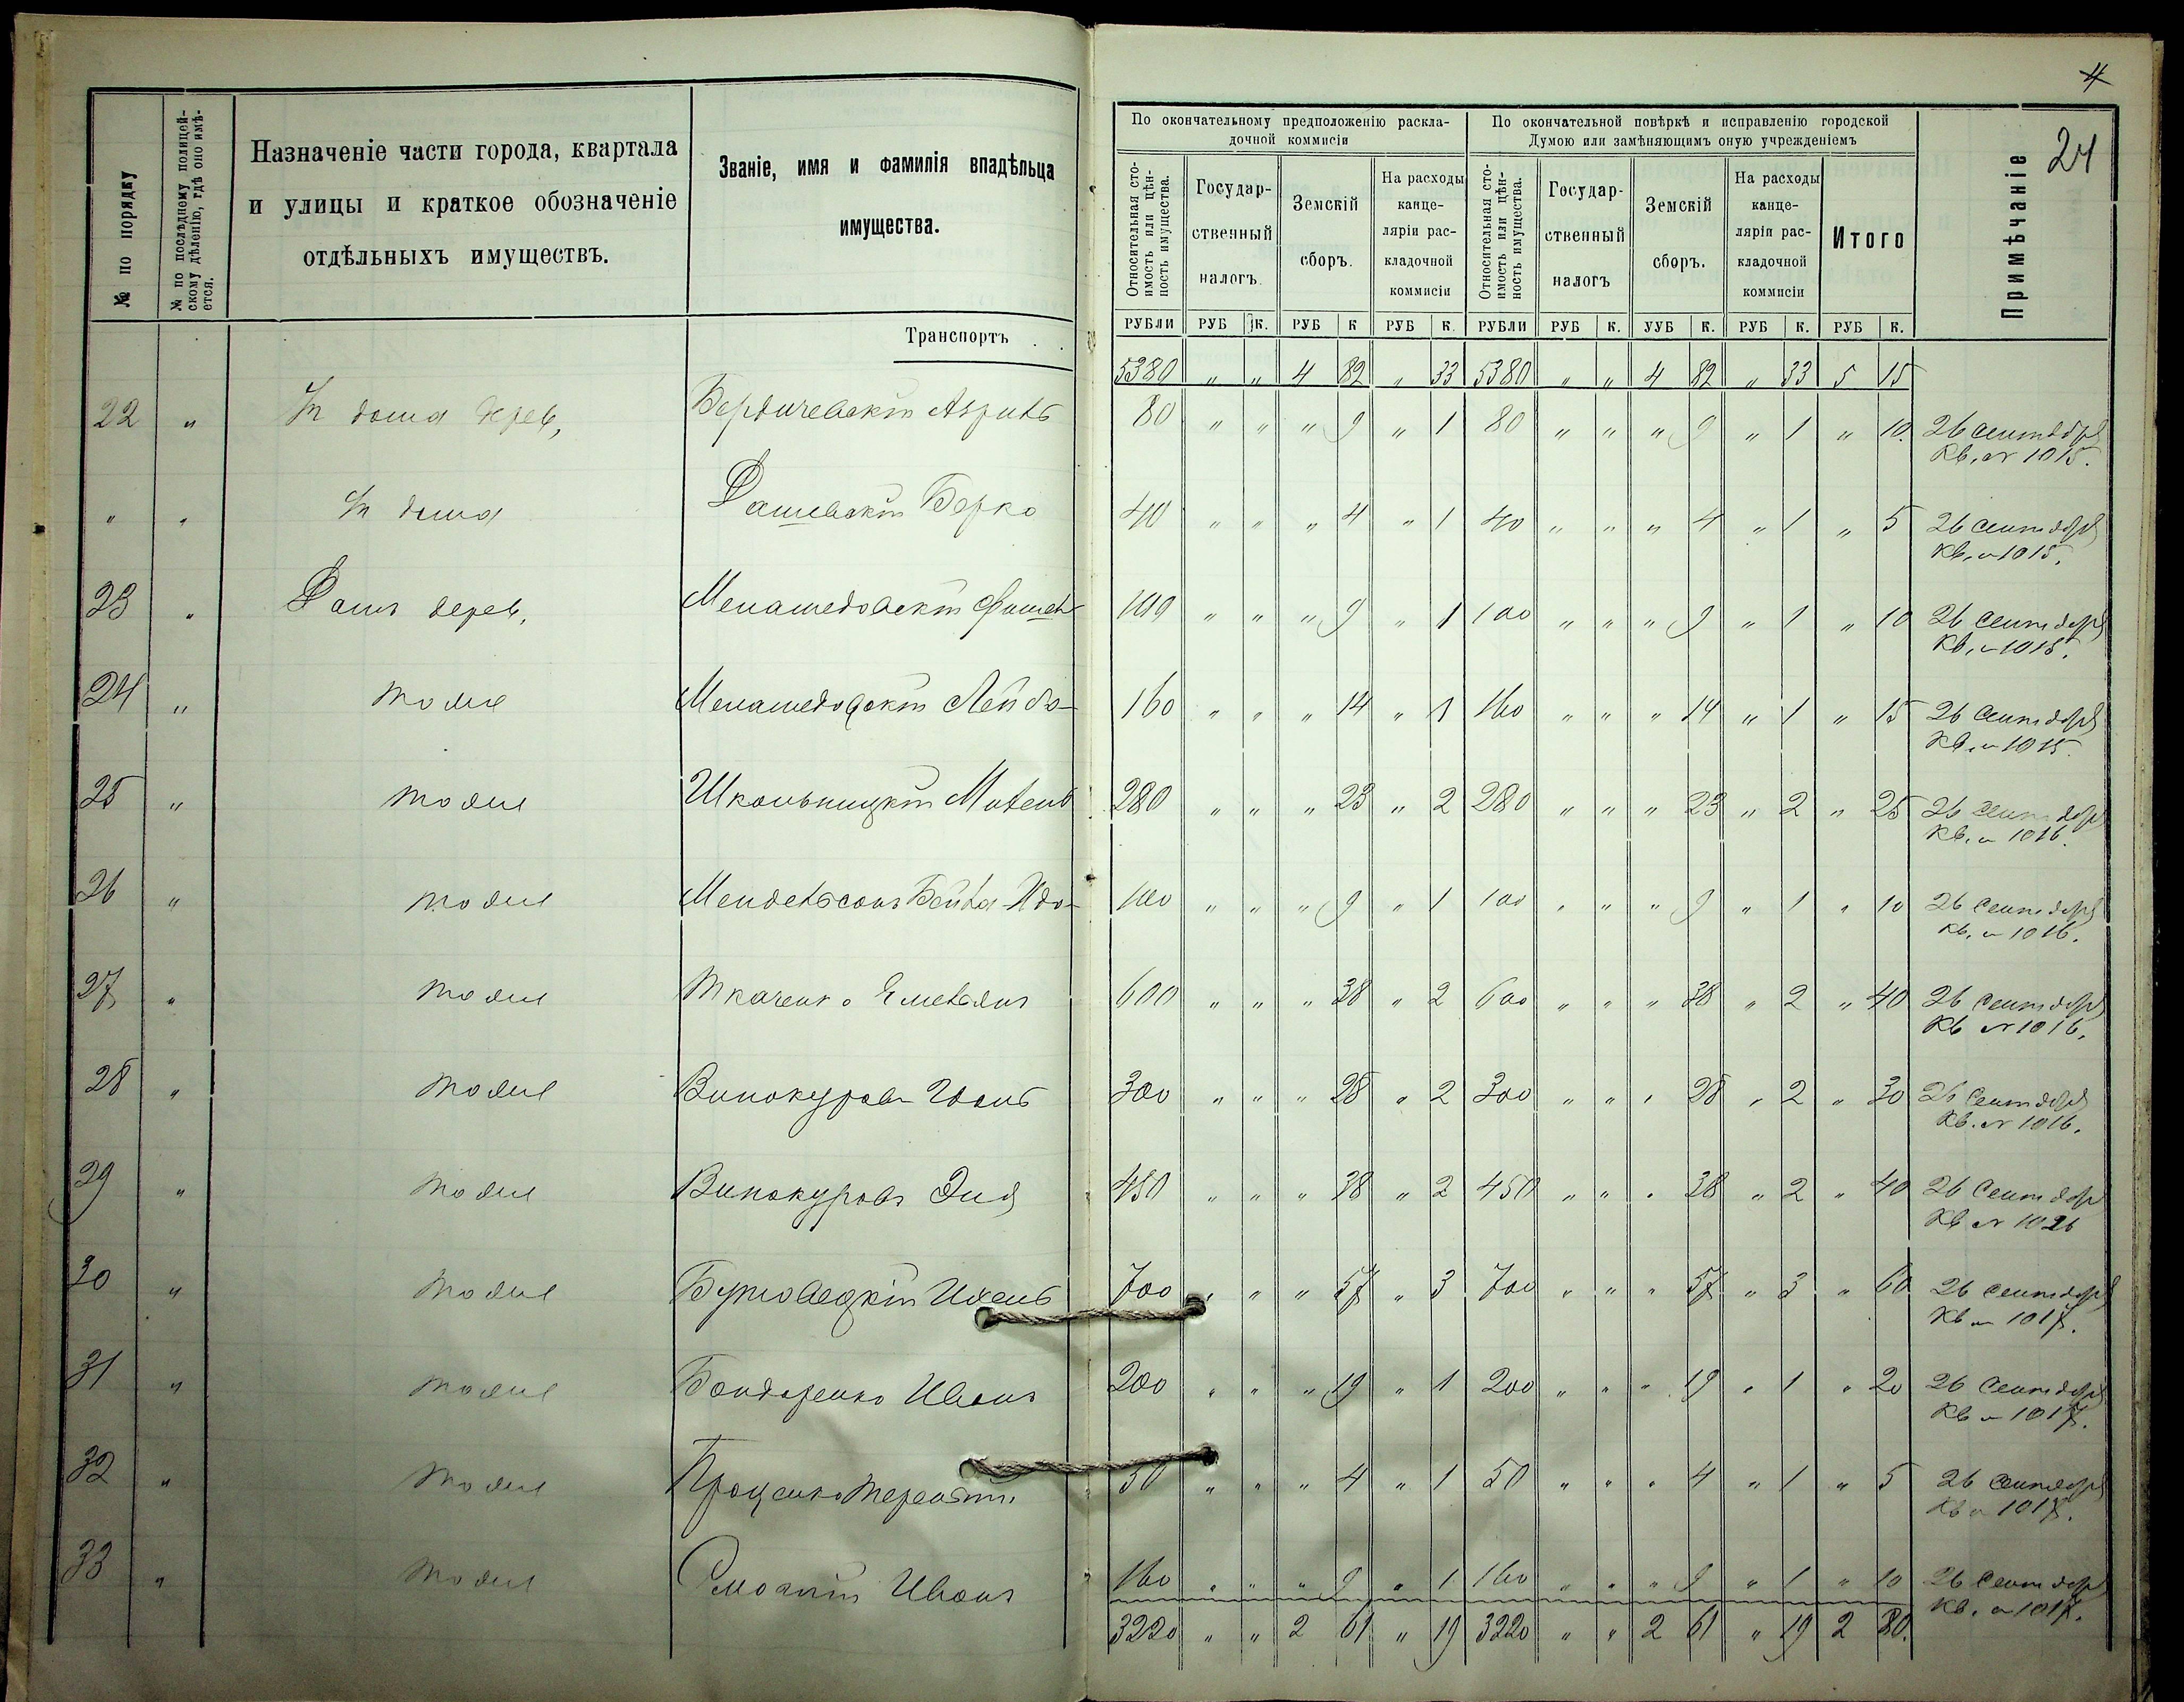 4
24
№ по порядку
№ по послѣднему полицей-
скому дѣленію, гдѣ оно имѣ-
ется.
Назначеніе части города, квартала
и улицы и краткое обозначеніе
отдѣльныхъ имуществъ.
Званіе, имя и фамилія владѣльца
имущества.
По окончательному предположенію раскла-
дочной коммисіи
По окончательной повѣркѣ и исправленію городской
Думою или замѣняющимъ оную учрежденіемъ
Относительная сто-
имость или цѣн-
ность имущества.
Государ-
ственный
налогъ.
Земскій
сборъ.
На расходы
канце-
ляріи рас-
кладочной
коммисіи
Относительная сто-
имость или цѣн-
ность имущества.
Государ-
ственный
налогъ
Земскій
сборъ.
На расходы
канце-
ляріи рас-
кладочной
коммисіи
Итого
Примѣчаніе
РУБЛИ РУБ К. РУБ К РУБ К. РУБЛИ РУБ К. УУБ К. РУБ К. РУБ К.
Транспортъ . .
5380 „ „ 4 82 „ 33 5380 „ „ 4 82 „ 33 5 15
22 „ ½ дома дерев, Бердичевскій Азриль 80 „ „ „ 9 „ 1 80 „ „ „ 9 „ 1 „ 10. 26 Сентября
Кв. № 1015.
„ „ ½ дома Дашевскій Берко 40 „ „ „ 4 „ 1 40 „ „ „ 4 „ 1 „ 5 26 Сентября
Кв. № 1015.
23 „ Домъ дерев, 100 „ „ „ 9 „ 1 100 „ „ „ 9 „ 1 „ 10 26 Сентября
Кв. № 1015.
24 „ тоже Лейба 160 „ „ „ 14 „ 1 160 „ „ „ 14 „ 1 „ 15 26 Сентября
Кв. № 1015.
25 „ тоже Школьницкій 280 „ „ „ 23 „ 2 280 „ „ „ 23 „ 2 „ 25 26 Сентября
Кв. № 1016.
26 „ тоже Мендельсонъ Бейла 100 „ „ „ 9 „ 1 100 „ „ „ 9 „ 1 „ 10 26 Сентября
Кв. № 1016.
27 „ тоже Ткаченко Емельянъ 600 „ „ „ 38 „ 2 600 „ „ „ 38 „ 2 „ 40 26 Сентября
Кв № 1016.
28 „ тоже Винокуровъ 300 „ „ „ 28 „ 2 300 „ „ „ 28 „ 2 „ 30 26 Сентября
Кв. № 1016.
29 „ тоже Винокуровъ 450 „ „ „ 38 „ 2 450 „ „ „ 38 „ 2 „ 40 26 Сентября
Кв № 1026
30 „ тоже 700 „ „ „ 57 „ 3 700 „ „ „ 57 „ 3 „ 60 26 Сентября
Кв № 1017.
31 „ тоже Бондаренко Иванъ 200 „ „ „ 19 „ 1 200 „ „ „ 19 „ 1 „ 20 26 Сентября
Кв № 1017.
32 „ тоже Проценко Терентій 50 „ „ „ 4 „ 1 50 „ „ „ 4 „ 1 „ 5 26 Сентября
Кв № 1017.
33 „ тоже Иванъ 160 „ „ „ 9 „ 1 160 „ „ „ 9 „ 1 „ 10 26 Сентября
Кв. № 1017.
3220 „ „ 2 61 „ 19 3220 „ „ 2 61 „ 19 2 80.